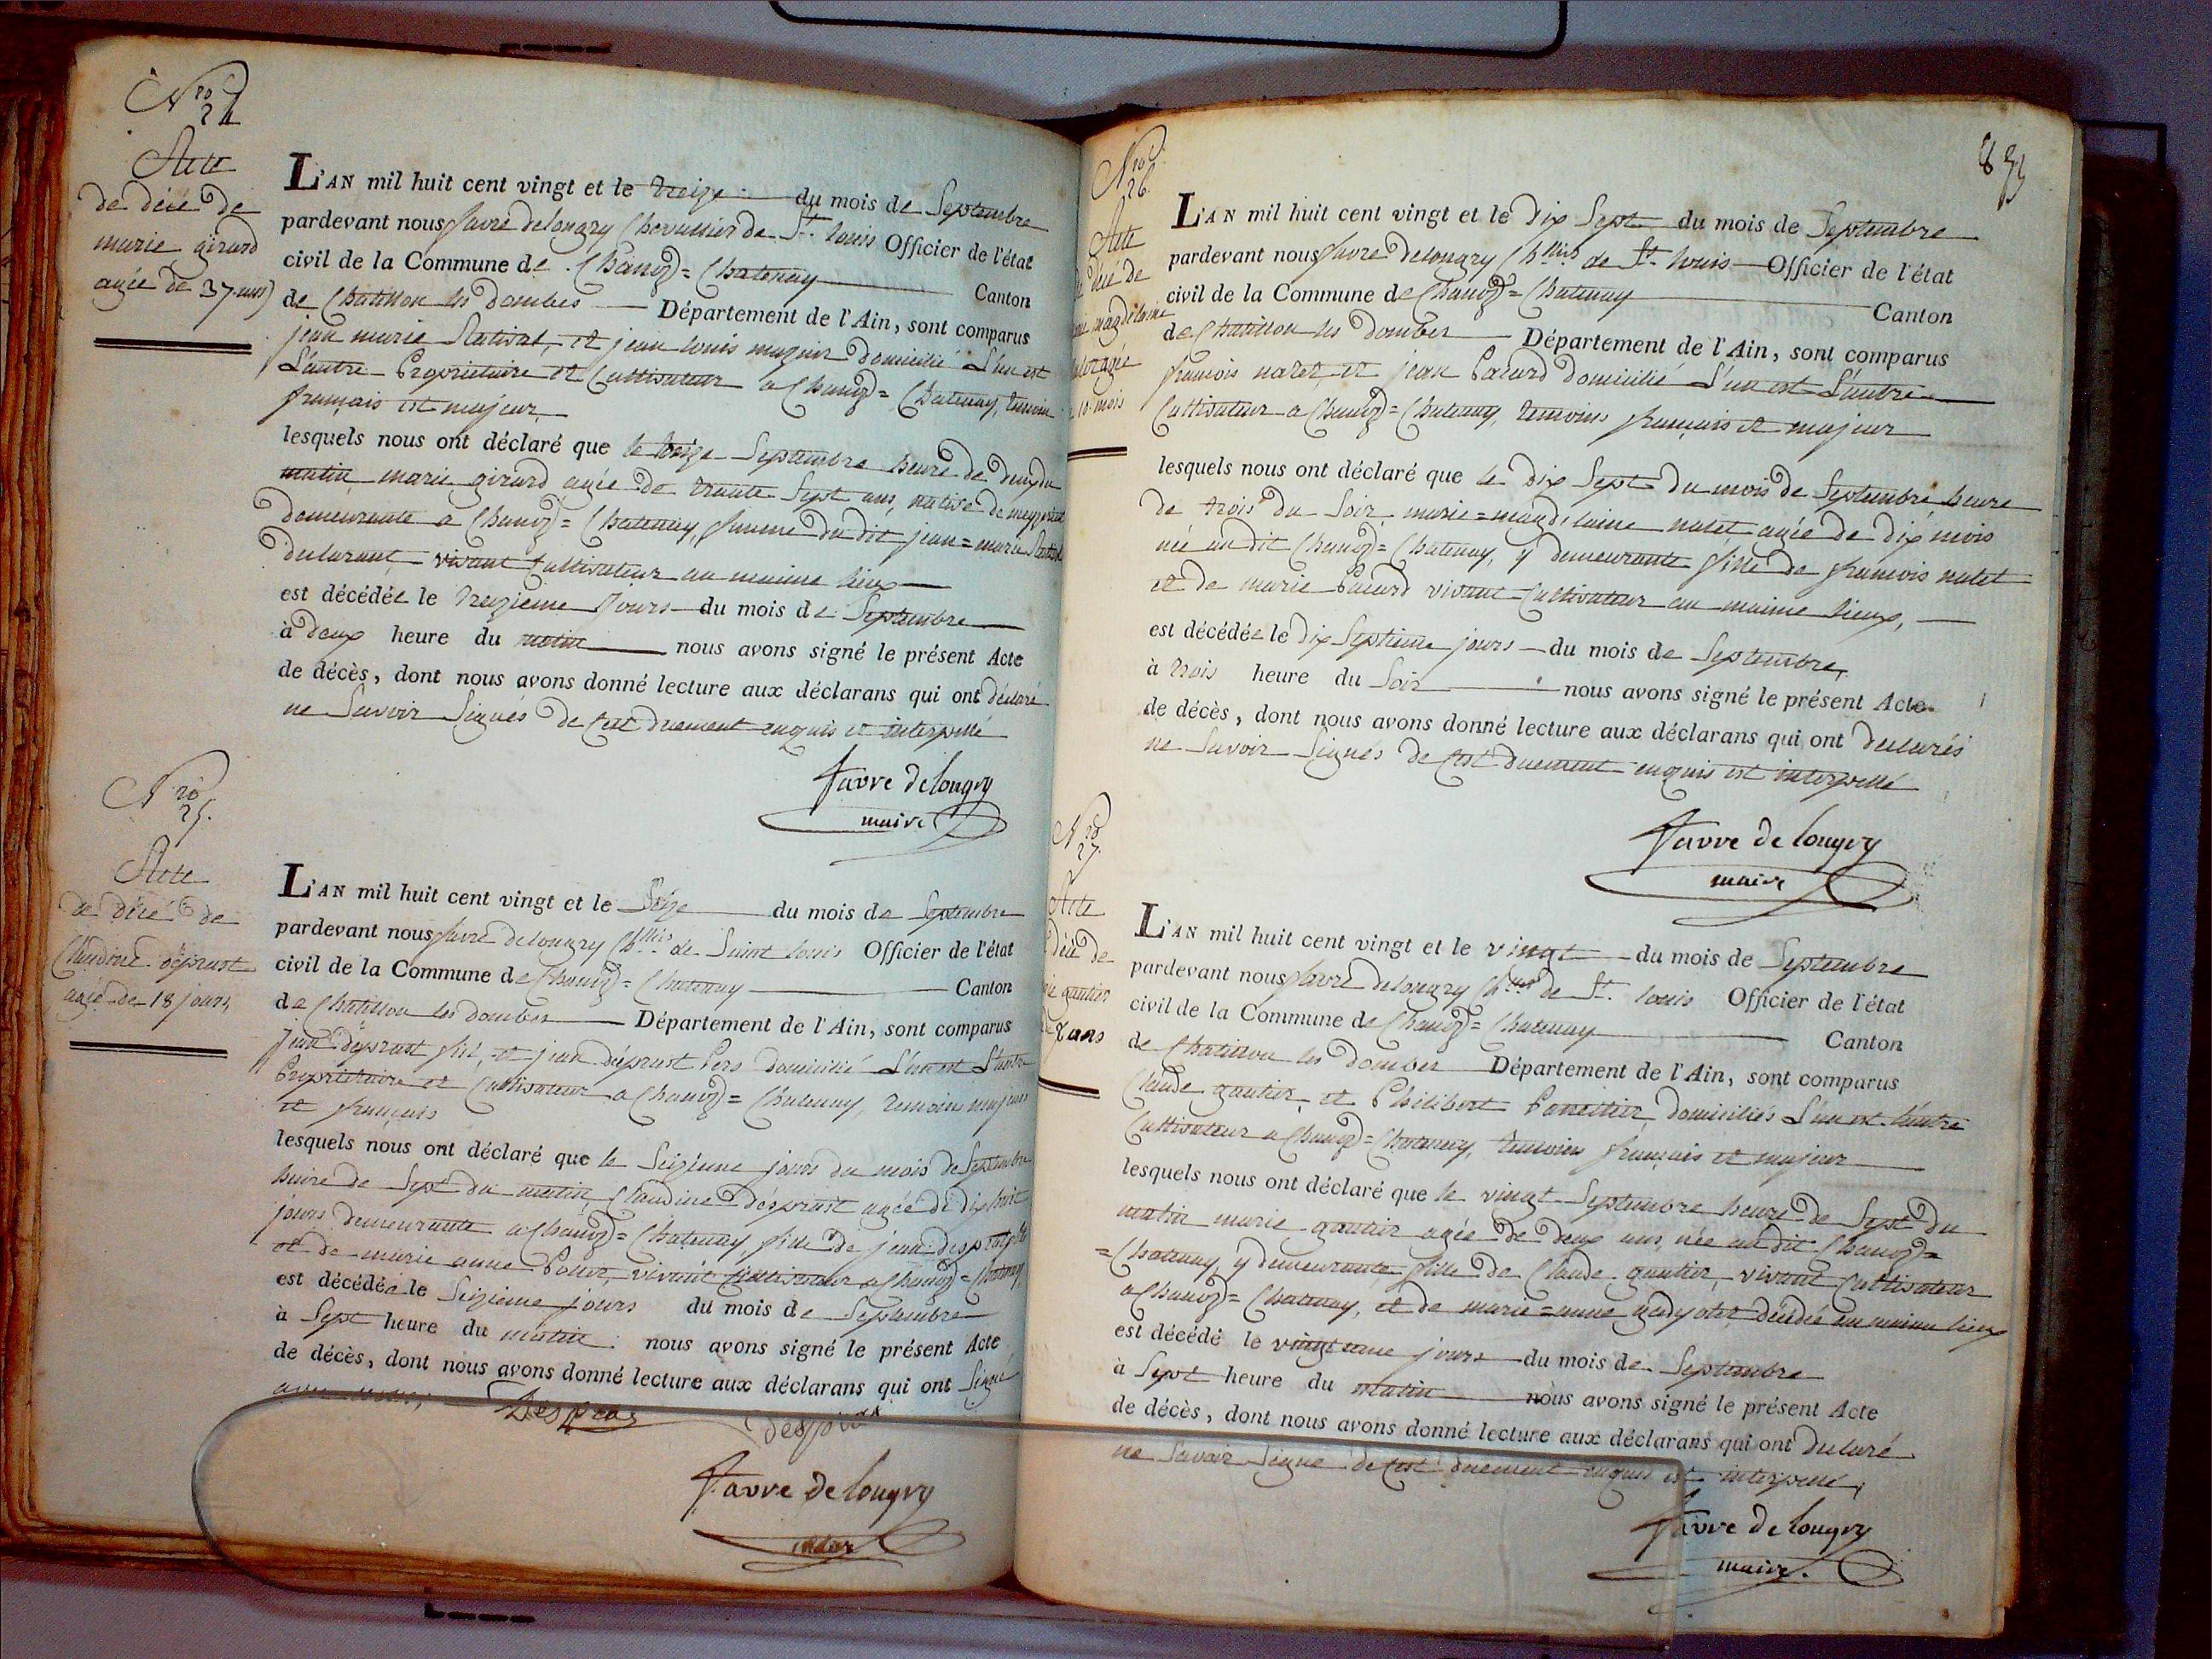 Nro 24
Acte
de décé de
marie girard
agée de 37 ans
L'AN mil huit cent vingt et le treize du mois de Septembre
pardevant nous favre delongry Chevallier de St. louis Officier de l'état
civil de la Commune de Chanoz = Chatenay Canton
de Chatillon les dombes Département de l'Ain, sont comparus
jean marie et jean louis domicilié L'un est
L'autre Proprietaire et Cultivateur a Chanoz = Chatenay, temoin
français et majeur
lesquels nous ont déclaré que le treize Septembre heure de deux du
matin marie girard agée de trante Sept ans, native de
demeurante a Chanoz = Chatenay, femme du dit jean = marie
declarant, vivant Cultivateur au maime lieux
est décédée le treizieme jours du mois de Septembre
à deux heure du matin nous avons signé le présent Acte
de décès, dont nous avons donné lecture aux déclarans qui ont déclaré
ne Savoir Signés de Cest duement enquis et interpellé
favre delongry
maire
Nro 25.
Acte
de décé de
Claudine déprast
agée de 18 jours
L'AN mil huit cent vingt et le Seize du mois de Septembre
pardevant nous favre delongry Chllier de Saint louis Officier de l'état
civil de la Commune de Chanoz = Chatenay Canton
de Chatillon les dombes Département de l'Ain, sont comparus
jean déprast fils, et jean déprast Pere domicilié L'un est L'autre
Proprietaire et Cultivateur a Chanoz = Chatenay, temoin majeur
et français
lesquels nous ont déclaré que le Seizieme jours du mois de Septembre
heure de Sept du matin Claudine désprast agée de dix huit
jours demeurante a Chanoz = Chatenay, fille de jean
et de marie anne vivant Cultivateur a Chanoz = Chatenay
est décédée le Seizieme jours du mois de Septembre
à Sept heure du matin nous avons signé le présent Acte
de décès, dont nous avons donné lecture aux déclarans qui ont Signé
avec nous,
favre delongry
maire
833
Nro 26.
Acte
de décé de
magdelaine
agée
10 mois
L'AN mil huit cent vingt et le dix Sept du mois de Septembre
pardevant nous favre delongry Chllier de St. louis Officier de l'état
civil de la Commune de Chanoz = Chatenay Canton
de Chatillon les dombes Département de l'Ain, sont comparus
francois natet, et jean Pacard domicilié L'un est L'autre
Cultivateur a Chanoz = Chatenay, temoins français et majeur
lesquels nous ont déclaré que le dix Sept du mois de Septembre heure
de trois du Soir marie = magdelaine natet agée de dix mois
née au dit Chanoz = Chatenay, y demeurante fille de francois natet
et de marie Pacard vivant Cultivateur au maime lieux,
est décédée le dix Septieme jours du mois de Septembre,
à trois heure du Soir nous avons signé le présent Acte
de décès, dont nous avons donné lecture aux déclarans qui ont declarés
ne Savoir Signés de Cest duement enquis est interpellé
favre de longry
maire
Nro 27.
Acte
décé de
gautier
2 ans
L'AN mil huit cent vingt et le vingt du mois de Septembre
pardevant nous favre delongry Chllier de St. louis Officier de l'état
civil de la Commune de Chanoz = Chatenay Canton
de Chatillon les dombes Département de l'Ain, sont comparus
Claude gautier, et Philibert domiciliés L'un est L'autre
Cultivateur a Chanoz = Chatenay, temoins français et majeur
lesquels nous ont déclaré que le vingt Septembre heure de Sept du
matin marie gautier agée de deux ans, née au dit Chanoz =
= Chatenay, y demeurante, fille de Claude gautier, vivant Cultivateur
a Chanoz = Chatenay, et de marie = anne décédée au maime lieux
est décédé le vingtieme jours du mois de Septembre
à Sept heure du matin nous avons signé le présent Acte
de décès, dont nous avons donné lecture aux déclarans qui ont declaré
ne Savoir Signé de Cest duement enquis est interpellé,
favre de longry
maire.